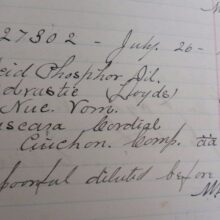 27302 - July. 26 -
cid Phosphor Dil.
drastic (Lloyds)
Nuc. Vom.
ascara Cordial
Cinchon. Comp. āā
spoonful diluted before